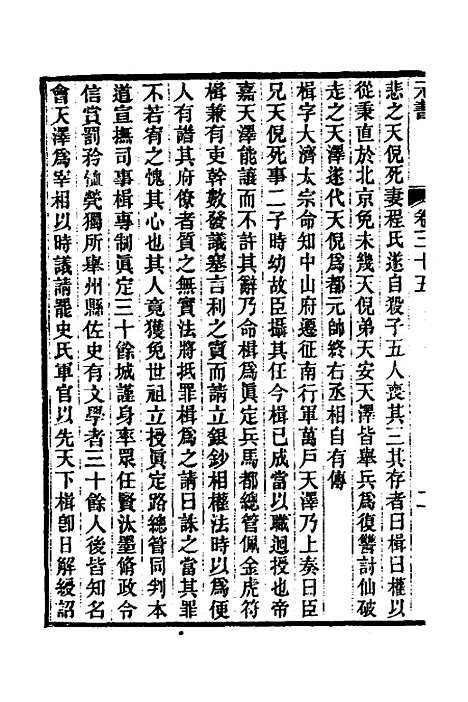 元書 卷三十五 二
悲之天倪死妻程氏遂自殺子五人喪其三其存者曰楫曰權以
從秉直於北京免未幾天倪弟天安天澤皆舉兵爲復讐討仙破
走之天澤遂代天倪爲都元帥終右丞相自有傳
楫字大濟太宗命知中山府遷征南行軍萬戶天澤乃上奏曰臣
兄天倪死事二子時幼故臣攝其任今楫已成當以職迴授也帝
嘉天澤能讓而不許其辭乃命楫爲眞定兵馬都總管佩金虎符
楫兼有吏幹數發議塞言利之竇而請立銀鈔相權法時以爲便
人有譖其府僚者質之無實法將抵罪楫爲之請曰誅之當其罪
不若宥之愧其心也其人竟獲免世祖立授眞定路總管同判本
道宣撫司事楫專制眞定三十餘城謹身率眾任賢汰墨脩政令
信賞罰矜恤煢獨所舉州縣佐史有文學者三十餘人後皆知名
會天澤爲宰相以時議請罷史氏軍官以先天下楫卽日解綬詔